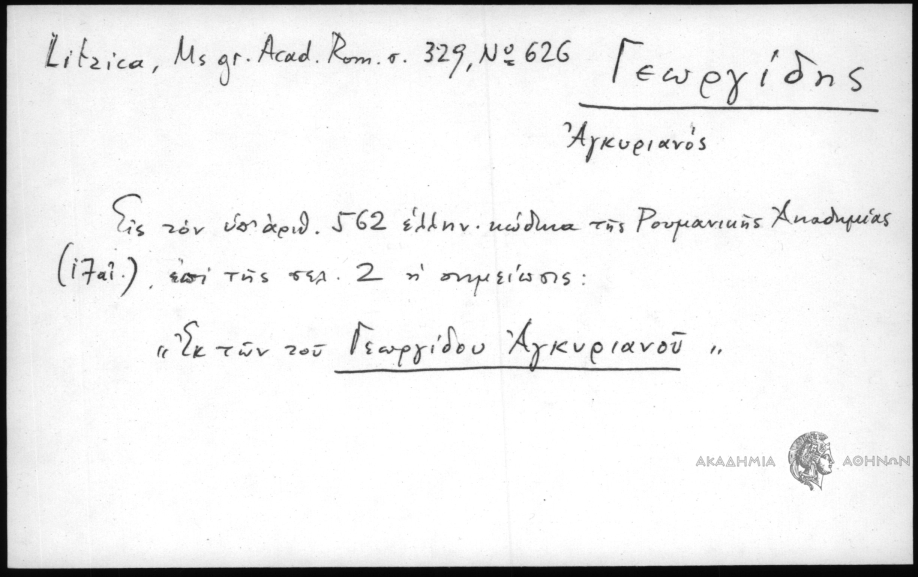 Litzica, Ms gr. Acad. Rom. σ. 329, Nº 626
Γεωργίδης
Ἀγκυριανός
Εἰς τὸν ὑπ' ἀριθ. 562 ἑλλην. κώδικα τῆς Ρουμανικῆς Ἀκαδημίας
(17 αἰ.), ἐπὶ τῆς σελ. 2 ἡ σημείωσις:
"Ἐκ τῶν τοῦ Γεωργίδου Ἀγκυριανοῦ"
ΑΚΑΔΗΜΙΑ ΑΘΗΝΩΝ